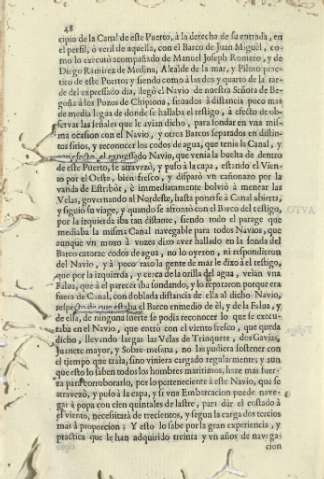 48
cipio de la Canal de este Puerto, à la derecha de su entrada, en
el perfil, ò veril de aquella, con el Barco de Juan Miguèl, co-
mo lo executò acompañado de Manuel Joseph Romero, y de
Diego Ramirez de Mesina, Alcalde de la mar, y Piloto prac-
tico de este Puerto; y siendo como à las dos y quarto de la tar-
de del expressado dia, llegò el Navio de nuestra Señora de Be-
goña à los Pozos de Chipiona, situados à distancia poco mas
de media legua de donde se hallaba el testigo, à efecto de ob-
servar las señales que le avian dicho, para sondar en una mis-
ma ocasion con el Navio, y otros Barcos separados en distin-
tos sitios, y reconocer los codos de agua, que tenia la Canal, y
el expressado Navio, que venia la buelta de dentro
de este Puerto, se atravezò, y puso à la capa, estando el Vien-
to por el Oeste, bien fresco, y disparò un cañonazo por la
vanda de Estribòr, è immediatamente bolviò à menear las
Velas, governando al Nordeste, hasta ponerse à Canal abierta,
y siguiò su viage, y quando se afrontò con el Barco del testigo,
por la izquierda iba tan distante, siendo todo el parage que
mediaba la misma Canal navegable para todos Navios, que
aunque un moso à vozes dixo aver hallado en la sonda del
Barco catorze codos de agua, no lo oyeron, ni respondieron
del Navio, y à poco raxo la gente de mar le dixo à el testigo,
que por la izquierda, y cerca de la orilla del agua, veìan una
Falua, que à el parecer iba sondando, y lo reparon porque era
fuera de Canal, con doblada distancia de ella al dicho Navio,
respecto de que estaba el Barco enmedio de èl, y de la Falua, y
de ella, de ninguna suerte se podia reconocer lo que se execu-
taba en el Navio, que entrò con el viento fresco, que queda
dicho, llevando largas las Velas de Trinquete, dos Gavias,
Juanete mayor, y Sobre-mesana, no las pudiera sostener con
el tiempo que traìa, sino viniera cargado regularmente; y aun
que esto lo saben todos los hombres maritimos, hace mas fuer-
za para corroborarlo, por lo perteneciente à este Navio, que se
atravezò, y puso à la capa, y si una Embarcacion puede nave-
gar à popa con cien quintales de lastre, para dàr el costado à
el viento, necessitarà de trecientos, y segun la carga dos tercios
mas à proporcion; Y esto lo sabe por la gran experiencia, y
practica que le han adquirido treinta y un años de navega-
cion